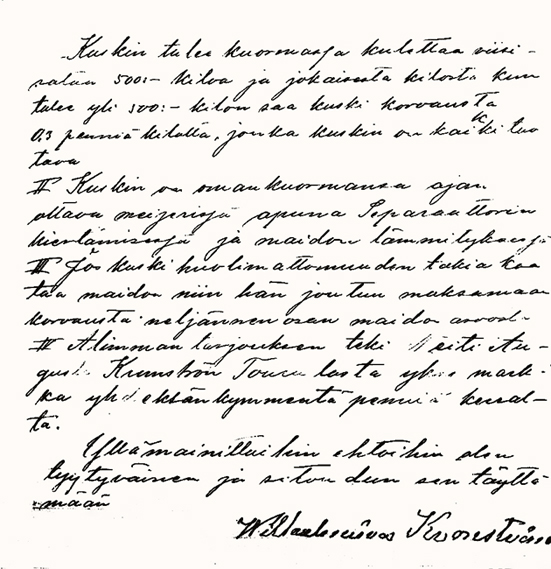 Kuskin tulee kuormassa kulettaa viisi-
sataa 500:- kiloa ja jokaisesta kilosta kun
tulee yli 500:- kilon saa kuski korvausta
0.3 penniä kilolta, jonka kuskin on kaikki tuo
tava
II Kuskin on omankuormansa ajan
oltava meijerissä apuna Separaattorin
kiertämisessä ja maidon lämmityksessä
III Jos kuski huolimattomuuden takia kaa
taa maidon niin hän joutuu maksamaan
korvausta neljännen osan maidon arvosta
IV Alimman tarjouksen teki Neiti Au-
gusta Krunström lasta yksi mark-
ka yhdeksänkymmentä penniä kerral-
ta.
Yllämainittuihin ehtoihin olen
tyytyväinen ja sitoudun sen täyttä
mään